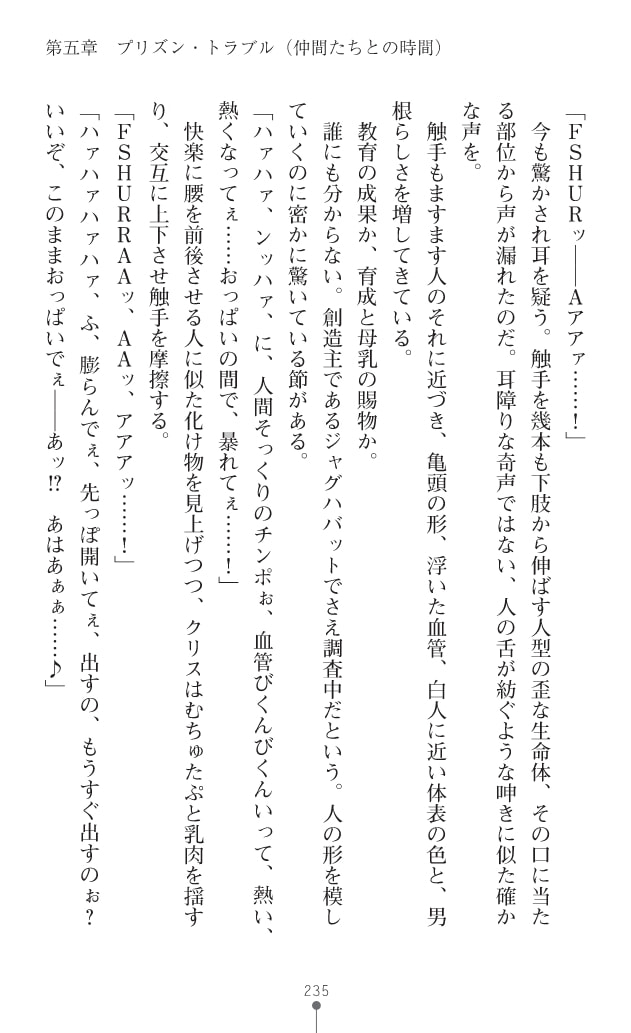 第五章　プリズン・トラブル（仲間たちとの時間）
「ＦＳＨＵＲッ――Ａアアァ……！」
　今も驚かされ耳を疑う。触手を幾本も下肢から伸ばす人型の歪な生命体、その口に当た
る部位から声が漏れたのだ。耳障りな奇声ではない、人の舌が紡ぐような呻きに似た確か
な声を。
　触手もますます人のそれに近づき、亀頭の形、浮いた血管、白人に近い体表の色と、男
根らしさを増してきている。
　教育の成果か、育成と母乳の賜物か。
　誰にも分からない。創造主であるジャグハバットでさえ調査中だという。人の形を模し
ていくのに密かに驚いている節がある。
「ハァハァ、ンッハァ、に、人間そっくりのチンポぉ、血管びくんびくんいって、熱い、
熱くなってぇ……おっぱいの間で、暴れてぇ……！」
　快楽に腰を前後させる人に似た化け物を見上げつつ、クリスはむちゅたぷと乳肉を揺す
り、交互に上下させ触手を摩擦する。
「ＦＳＨＵＲＲＡＡッ、ＡＡッ、アアアッ……！」
「ハァハァハァハァ、ふ、膨らんでぇ、先っぽ開いてぇ、出すの、もうすぐ出すのぉ？
いいぞ、このままおっぱいでぇ――あッ!?　あはあぁぁ……♪」
235